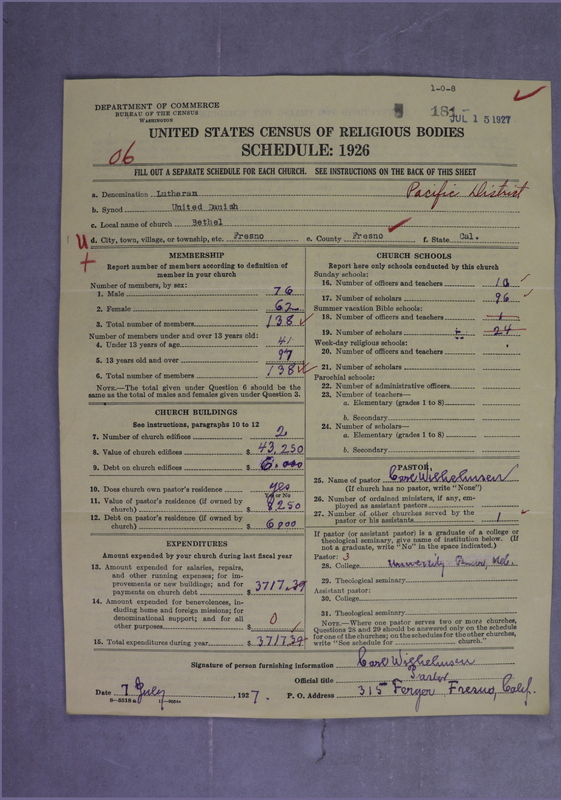 1-0-8
181-
JUL 15 1927
DEPARTMENT OF COMMERCE
BUREAU OF THE CENSUS
WASHINGTON
UNITED STATES CENSUS OF RELIGIOUS BODIES
SCHEDULE: 1926
06
FILL OUT A SEPARATE SCHEDULE FOR EACH CHURCH. SEE INSTRUCTIONS ON THE BACK OF THIS SHEET
a. Denomination Lutheran Pacific District
b. Synod United Danish
c. Local name of church Bethel
d. City, town, village, or township, etc. Fresno e. County Fresno f. State Cal.
MEMBERSHIP
Report number of members according to definition of
member in your church
Number of members, by sex:
1. Male 76
2. Female 62
3. Total number of members 138
Number of members under and over 13 years old:
4. Under 13 years of age 41
5. 13 years old and over 97
6. Total number of members 138
NOTE.—The total given under Question 6 should be
same as the total of males and females given under Question 3.
CHURCH BUILDINGS
See instructions, paragraphs 10 to 12
7. Number of church edifices 2
8. Value of church edifices $ 43,250
9. Debt on church edifices $ 6,000
10. Does church own pastor's residence yes
Yes or No
11. Value of pastor's residence (if owned by
church) $ 8250
12. Debt on pastor's residence (if owned by
church) $ 6000
EXPENDITURES
Amount expended by your church during last fiscal year
13. Amount expended for salaries, repairs,
and other running expenses; for im-
provements or new buildings; and for
payments on church debt $ 3717.39
14. Amount expended for benevolences, in-
cluding home and foreign missions; for
denominational support; and for all
other purposes $ 0
15. Total expenditures during year $ 3717.39
CHURCH SCHOOLS
Report here only schools conducted by this church
Sunday schools:
16. Number of officers and teachers 10
17. Number of scholars 96
Summer vacation Bible schools:
18. Number of officers and teachers 1
19. Number of scholars 24
Week-day religious schools:
20. Number of officers and teachers
21. Number of scholars
Parochial schools:
22. Number of administrative officers
23. Number of teachers—
a. Elementary (grades 1 to 8)
b. Secondary
24. Number of scholars—
a. Elementary (grades 1 to 8)
b. Secondary
PASTOR,
25. Name of pastor Carl Wilhelmsen
(If church has no pastor, write "None")
26. Number of ordained ministers, if any, em-
ployed as assistant pastors
27. Number of other churches served by the
pastor or his assistants 1
If pastor (or assistant pastor) is a graduate of a college or
theological seminary, give name of institution below. (If
not a graduate, write "No" in the space indicated.)
Pastor: 3
28. College University
29. Theological seminary
Assistant pastor:
30. College
31. Theological seminary
NOTE.—Where one pastor serves two or more churches,
Questions 28 and 29 should be answered only on the schedule
for one of the churches; on the schedules for the other churches,
write "See schedule for church."
Signature of person furnishing information Carl Wilhelmsen
Official title Pastor
Date 7 July, 1927. P. O. Address 315 Ferger Fresno, Calif.